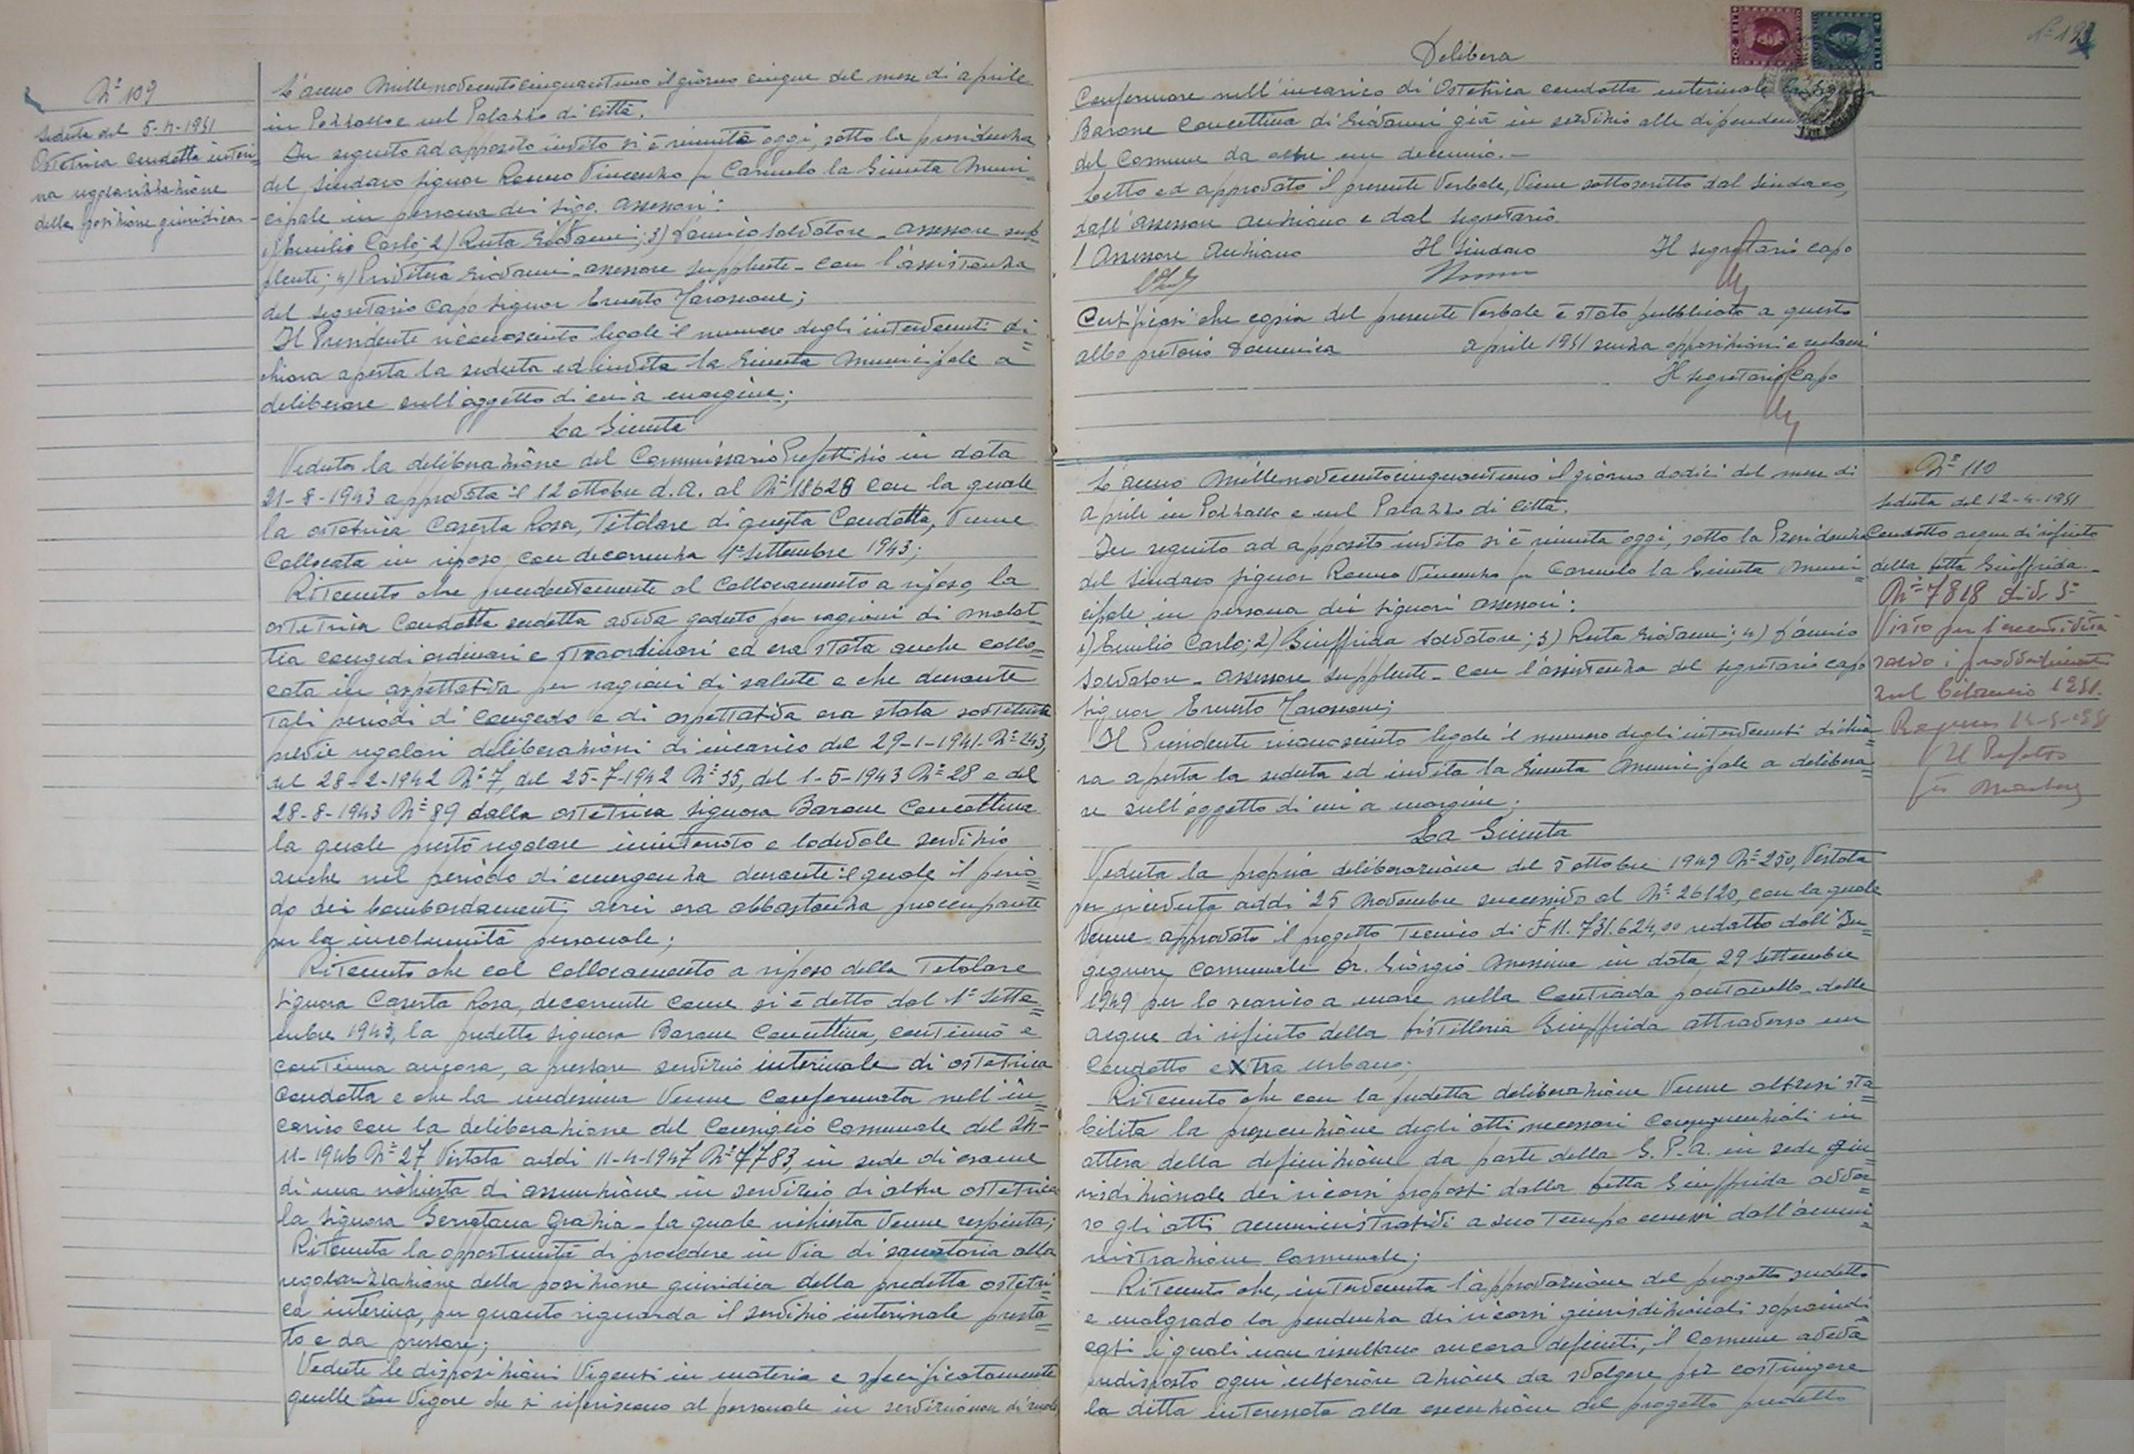 N° 109
seduta del 5-4-1951
Ostetrica condotta interi-
na regolarizzazione
della posizione giuridica -
L'anno Millenovecentocinquantuno il giorno cinque del mese di aprile
in Pozzallo e nel Palazzo di Città.
In seguito ad apposito invito si è riunita oggi, sotto la presidenza
del Sindaco Signor Romeo Vincenzo fu Carmelo la Giunta Muni=
cipale in persona dei Sigg. Assessori:
1) Emilio Carlo; 2) Ruta Giovanni; 3) D'amico Salvatore - assessore sup=
plente; 4) Privitera Giovanni - assessore supplente - con l'assistenza
del segretario capo Signor Ernesto
Il Presidente riconosciuto legale il numero degli intervenuti di=
chiara aperta la seduta ed invita la Giunta Municipale a
deliberare sull'oggetto di cui a margine;
La Giunta
Veduta la deliberazione del Commissario Prefettizio in data
21-8-1943 approvata il 12 ottobre d.a. al N° 18628 con la quale
la ostetrica Caserta Rosa, Titolare di questa Condotta, venne
Collocata in riposo con decorrenza 1° settembre 1943;
Ritenuto che precedentemente al Collocamento a riposo, la
ostetrica Condotta sudetta aveva goduto per ragioni di malat
tia congedi ordinari e straordinari ed era stata anche collo=
cata in aspettativa per ragioni di salute e che durante
tali periodi di congedo e di aspettativa era stata sostituita
previe regolari deliberazioni di incarico del 29-1-1941- N° 243,
del 28-2-1942 N° 7, del 25-7-1942 N° 35, del 1-5-1943 N° 28 e del
28-8-1943 N° 89 dalla ostetrica signora Barone Concettina
la quale prestò regolare ininterrotto e lodevole servizio
anche nel periodo di emergenza durante il quale il perio=
do dei bombardamenti aerei era abbastanza preoccupante
per la incolumità personale;
Ritenuto che col collocamento a riposo della Titolare
signora Caserta Rosa, decorrente come si è detto dal 1° sette=
mbre 1943, la predetta signora Barone Concettina, continuò e
continua ancora, a prestare servizio interinale di ostetrica
Condotta e che la medesima venne Confermata nell'in=
carico con la deliberazione del Consiglio Comunale del 24-
11-1946 N° 27 Vistata addì 11-4-1947 N° 7783, in sede di esame
di una richiesta di assunzione in servizio di altra ostetrica
la signora Serratana Grazia - la quale richiesta venne respinta;
Ritenuta la opportunità di procedere in via di sanatoria alla
regolarizzazione della posizione giuridica della predetta ostetri=
ca interina, per quanto riguarda il servizio interinale presta=
to e da prestare;
Vedute le disposizioni Vigenti in materia e specificatamente
quelle in Vigore che si riferiscono al personale in servizio non di ruolo
Delibera
Confermare nell'incarico di Ostetrica condotta interinale la
Barone Concettina di Giovanni già in servizio alle dipendenze
del Comune da oltre un decennio. -
Letto ed approvato il presente Verbale, viene sottoscritto dal Sindaco,
dall'assessore anziano e dal segretario.
L'Assessore Anziano Il Sindaco Il segretario capo
Certificasi che copia del presente Verbale è stato pubblicato a questo
albo pretorio domenica aprile 1951 senza opposizioni e reclami
Il segretario Capo
N° 110
Seduta del 12-4-1951
Condotto acque di rifiuto
della ditta Giuffrida -
N° 7818 div 5°
Visto per l'esecutività
salvo i provvedimenti
sul bilancio 1951.
Ragusa 14-5-1951
Il Prefetto
L'anno Millenovecentocinquantuno il giorno dodici del mese di
aprile in Pozzallo e nel Palazzo di Città.
In seguito ad apposito invito si è riunita oggi, sotto la Presidenza
del Sindaco Signor Romeo Vincenzo fu Carmelo la Giunta Muni=
cipale in persona dei Signori assessori:
1) Emilio Carlo; 2) Giuffrida Salvatore; 3) Ruta Giovanni; 4) D'amico
Salvatore - assessore supplente - con l'assistenza del segretario capo
Signor Ernesto
Il Presidente riconosciuto legale il numero degli intervenuti dichia=
ra aperta la seduta ed invita la Giunta Municipale a delibera=
re sull'oggetto di cui a margine;
La Giunta
Veduta la propria deliberazione del 5 ottobre 1949 N° 250, Vistata
per ricevuta addì 25 Novembre successivo al N° 26120, con la quale
venne approvato il progetto tecnico di £ 11.731.624,00 redatto dall'In=
gegnere comunale Dr. Giorgio Messina in data 29 settembre
1949 per lo scarico a mare nella Contrada pantanello - delle
acque di rifiuto della distilleria Giuffrida attraverso un
Condotto extra urbano;
Ritenuto che con la predetta deliberazione venne altresì sta=
bilita la prosecuzione degli atti necessari Consequenziali in
attesa della definizione da parte della G.P.A. in sede giu=
risdizionale dei ricorsi proposti dalla ditta Giuffrida avver=
so gli atti amministrativi a suo tempo emessi dall'ammi=
nistrazione Comunale;
Ritenuto che, intervenuta l'approvazione del progetto sudetto
e malgrado la pendenza dei ricorsi giurisdizionali sopraindi=
cati i quali non risultano ancora definiti, il Comune aveva
predisposto ogni ulteriore azione da svolgere per costringere
la ditta interessata alla esecuzione del progetto predetto